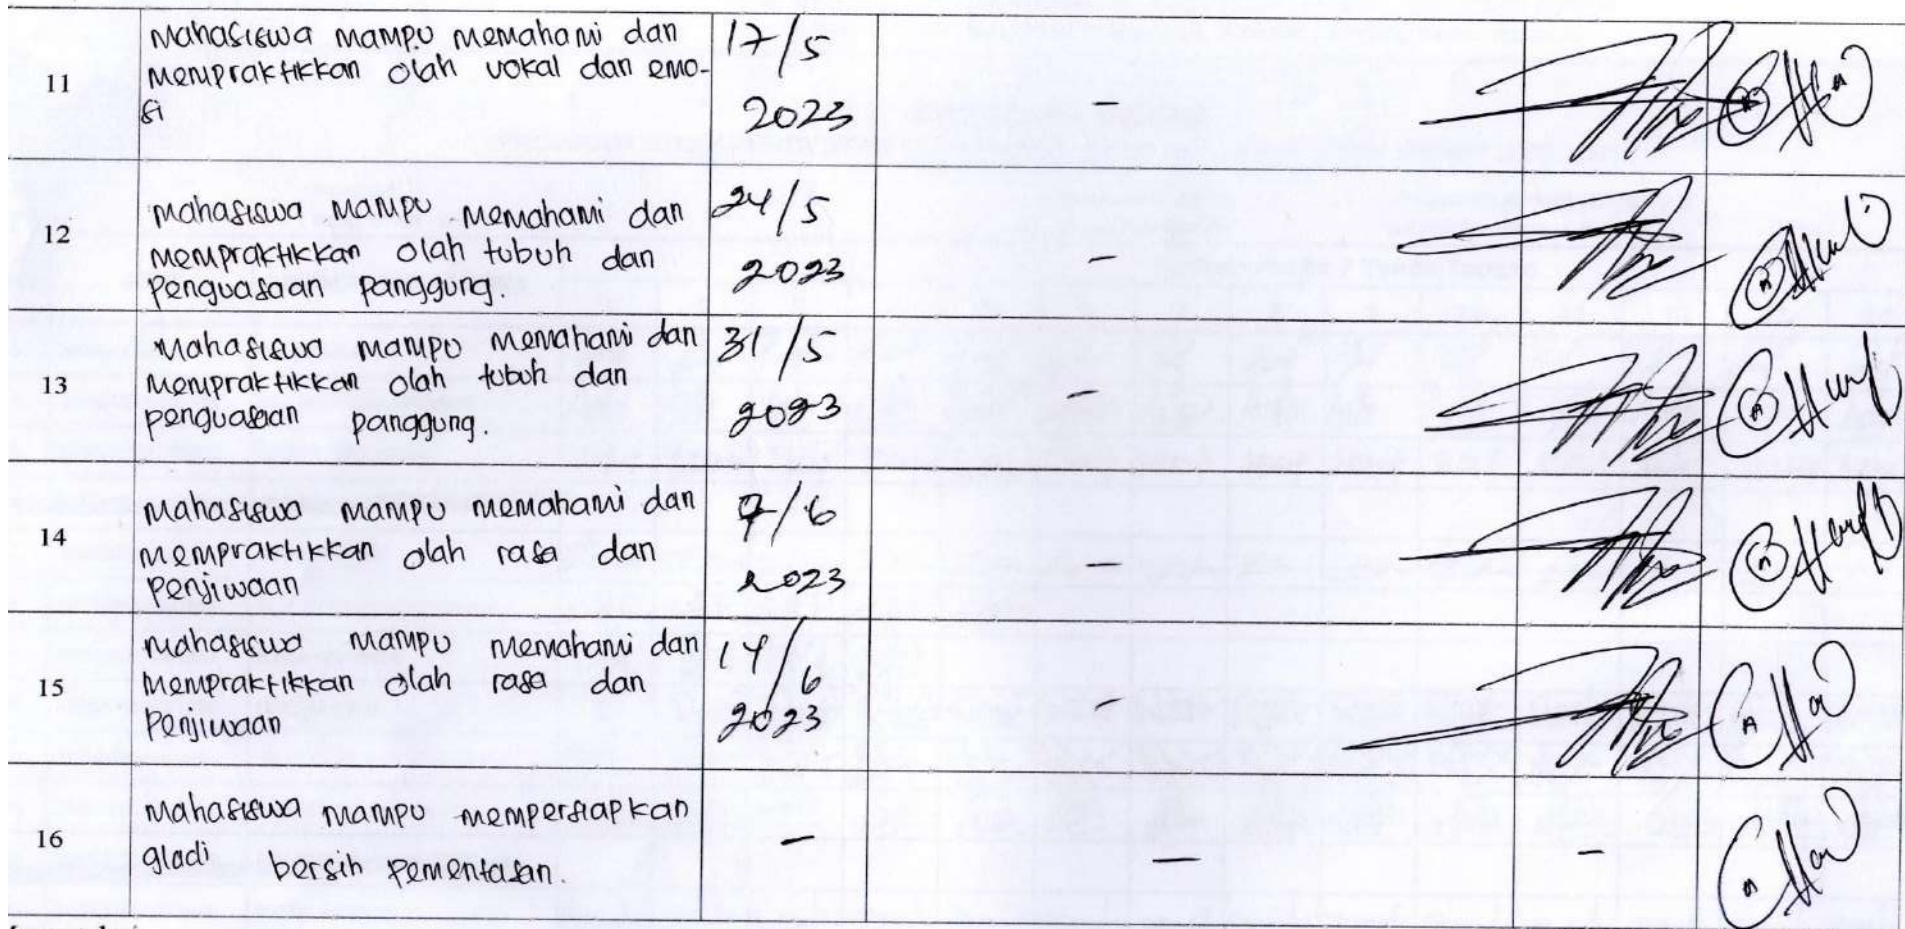 11
Mahasiswa mampu memahami dan
mempraktikkan olah vokal dan emo-
si
17/5
2023
-
12
Mahasiswa mampu memahami dan
mempraktikkan olah tubuh dan
penguasaan panggung.
24/5
2023
-
13
Mahasiswa mampu memahami dan
mempraktikkan olah tubuh dan
penguasaan panggung.
31/5
2023
-
14
Mahasiswa mampu memahami dan
mempraktikkan olah rasa dan
penjiwaan
7/6
2023
-
15
Mahasiswa mampu memahami dan
mempraktikkan olah rasa dan
penjiwaan
14/6
2023
-
16
Mahasiswa mampu mempersiapkan
gladi bersih pementasan.
-
-
-